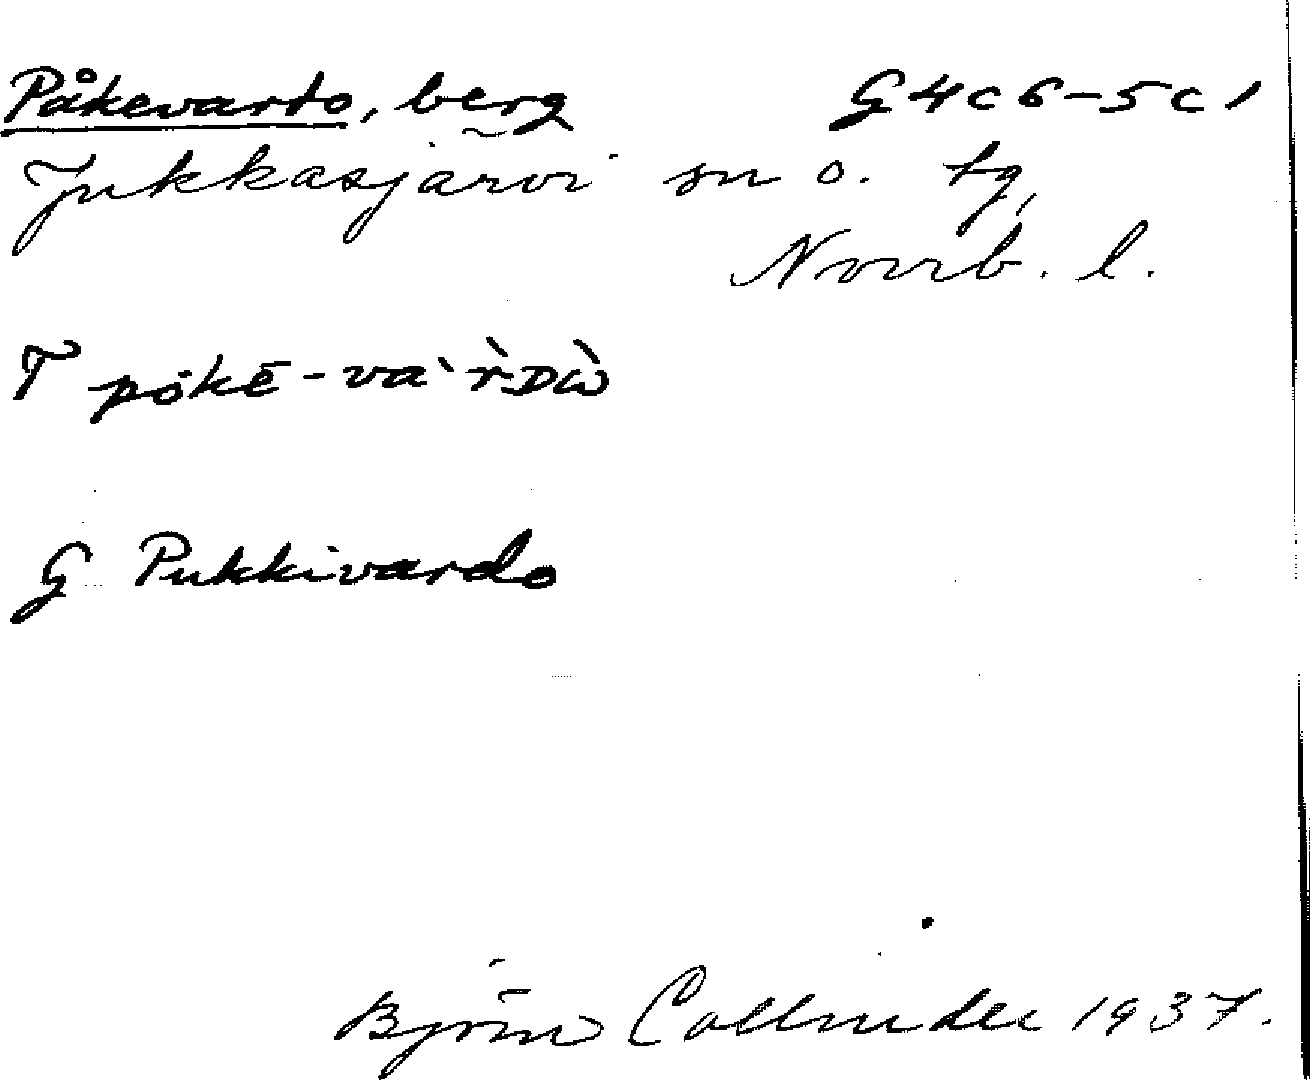 Påkevarto, berg G4c6-5c1
Jukkasjärvi sn o. tg,
Norrb. l.
T pȯkē-va`r̀Dὼ
G Pukkivardo
Björn Collinder 1937.